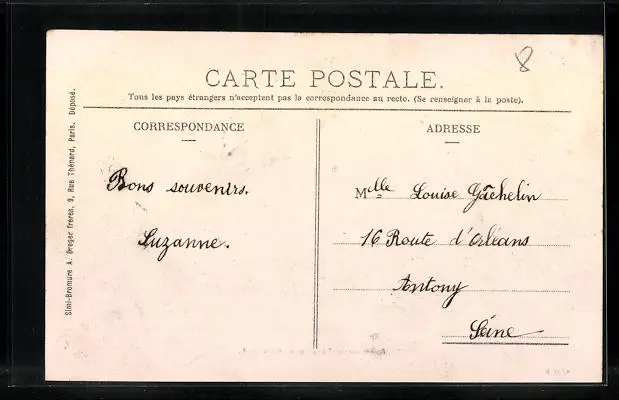 8
CARTE POSTALE.
Tous les pays étrangers n'acceptent pas la correspondance au recto. (Se renseigner à la poste).
CORRESPONDANCE
Bons souvenirs.
Suzanne.
ADRESSE
Mlle Louise Gachelin
16 Route d'Orléans
Antony
Seine
Simi-Bromure A. Breger frères, 9, Rue Thénard, Paris. Déposé.